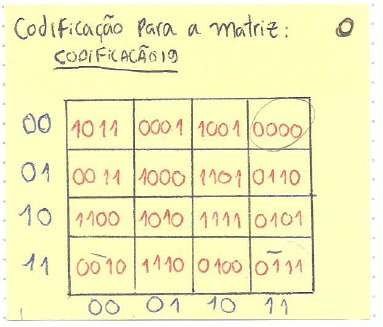 Codificação para a matriz: 0
CODIFICAÇÃO 19
00 1011 0001 1001 0000
01 0011 1000 1101 0110
10 1100 1010 1111 0101
11 0010 1110 0100 0111
00 01 10 11